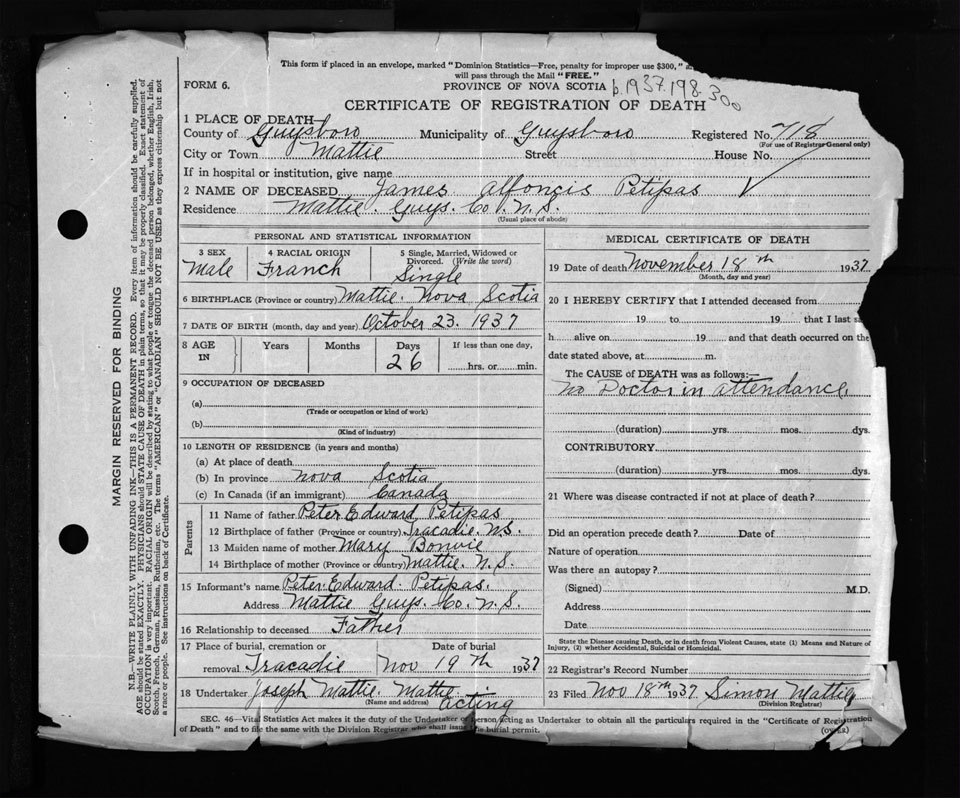 This form if placed in an envelope, marked "Dominion Statistics—Free, penalty for improper use $300," a
will pass through the Mail "FREE."
FORM 6.
PROVINCE OF NOVA SCOTIA
b.1937.198.300
CERTIFICATE OF REGISTRATION OF DEATH
1 PLACE OF DEATH—
County of Guysboro Municipality of Guysboro Registered No. 718
(For use of Registrar General only)
City or Town Mattie Street House No.
If in hospital or institution, give name
2 NAME OF DECEASED James Alfoncis Petipas
Residence Mattie. Guys. Co. N.S.
(Usual place of abode)
PERSONAL AND STATISTICAL INFORMATION
3 SEX Male
4 RACIAL ORIGIN Franch
5 Single, Married, Widowed or Divorced. (Write the word) Single
6 BIRTHPLACE (Province or country) Mattie. Nova Scotia
7 DATE OF BIRTH (month, day and year) October 23. 1937
8 AGE IN Years Months Days 26 If less than one day, ....hrs. or....min.
9 OCCUPATION OF DECEASED
(a)
(Trade or occupation or kind of work)
(b)
(Kind of industry)
10 LENGTH OF RESIDENCE (in years and months)
(a) At place of death
(b) In province Nova Scotia
(c) In Canada (if an immigrant) Canada
Parents
11 Name of father Peter Edward Petipas
12 Birthplace of father (Province or country) Tracadie. N.S.
13 Maiden name of mother Mary Bonvie
14 Birthplace of mother (Province or country) Mattie. N.S.
15 Informant's name Peter. Edward. Petipas.
Address Mattie Guys. Co. N.S.
16 Relationship to deceased Father
17 Place of burial, cremation or removal Tracadie Date of burial Nov 19th 1937
18 Undertaker Joseph Mattie. Mattie
(Name and address) acting
MEDICAL CERTIFICATE OF DEATH
19 Date of death November 18th 1937
(Month, day and year)
20 I HEREBY CERTIFY that I attended deceased from
19 to 19 that I last s
h alive on 19 and that death occurred on the
date stated above, at m.
The CAUSE of DEATH was as follows:—
No Doctor in attendance
(duration) yrs. mos. dys.
CONTRIBUTORY
(duration) yrs. mos. dys.
21 Where was disease contracted if not at place of death?
Did an operation precede death? Date of
Nature of operation
Was there an autopsy?
(Signed) M.D.
Address
Date
State the Disease causing Death, or in death from Violent Causes, state (1) Means and Nature of
Injury, (2) whether Accidental, Suicidal or Homicidal.
22 Registrar's Record Number
23 Filed Nov 18th 1937 Simon Mattie
(Division Registrar)
SEC. 46—Vital Statistics Act makes it the duty of the Undertaker or person acting as Undertaker to obtain all the particulars required in the "Certificate of Registration
of Death" and to file the same with the Division Registrar who shall issue the burial permit.
(OVER)
MARGIN RESERVED FOR BINDING
N.B.—WRITE PLAINLY WITH UNFADING INK—THIS IS A PERMANENT RECORD. Every item of information should be carefully supplied.
AGE should be stated EXACTLY. PHYSICIANS should STATE CAUSE OF DEATH in plain terms, so that it may be properly classified. Exact statement of
OCCUPATION is very important. RACIAL ORIGIN will be described by stating to what people or tongue the deceased person belonged, whether English, Irish,
Scotch, French, German, Russian, Ruthenian, etc. The terms "AMERICAN" or "CANADIAN" SHOULD NOT BE USED as they express citizenship but not
a race or people. See instructions on back of Certificate.